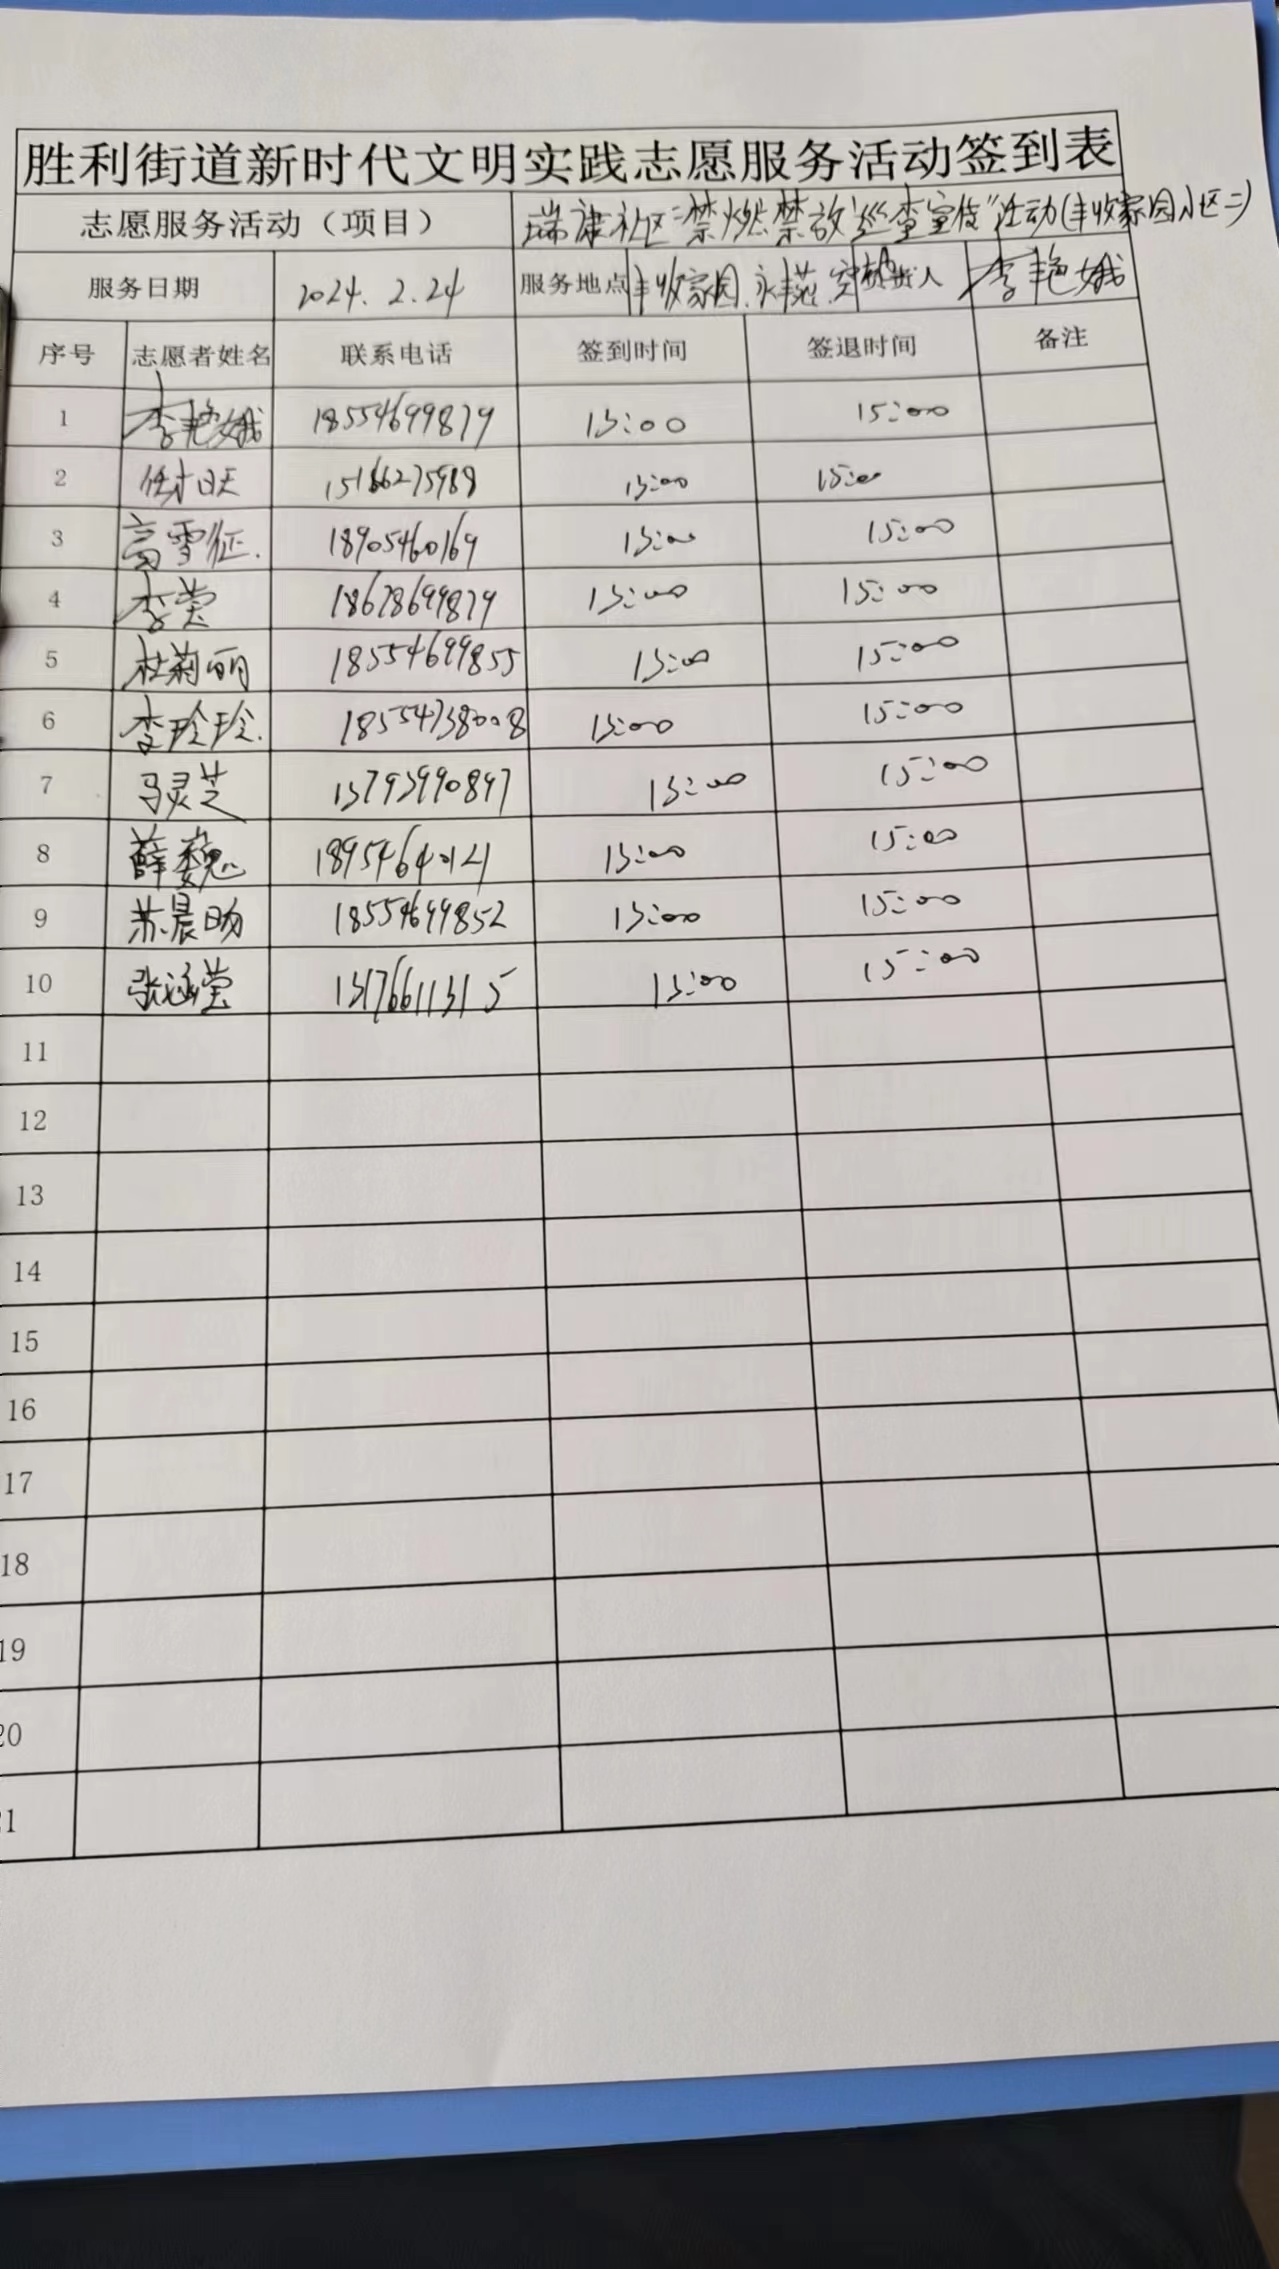 胜利街道新时代文明实践志愿服务活动签到表
志愿服务活动（项目） 瑞康社区"禁燃禁放"巡查宣传"活动(丰收家园小区二)
服务日期 2024.2.24 服务地点 丰收家园.永芳苑 负责人 李艳娥
序号 志愿者姓名 联系电话 签到时间 签退时间 备注
1 李艳娥 18554699879 13:00 15:00
2 15166275988 13:00 15:00
3 高雪征 18905460169 13:00 15:00
4 李莹 18678699879 13:00 15:00
5 杜莉丽 18554699855 13:00 15:00
6 李玲玲 18554738008 13:00 15:00
7 马灵芝 13793990897 13:00 15:00
8 薛巍 18954640121 13:00 15:00
9 苏晨旸 18554699852 13:00 15:00
10 张涵莹 13176611315 13:00 15:00
11
12
13
14
15
16
17
18
19
20
21